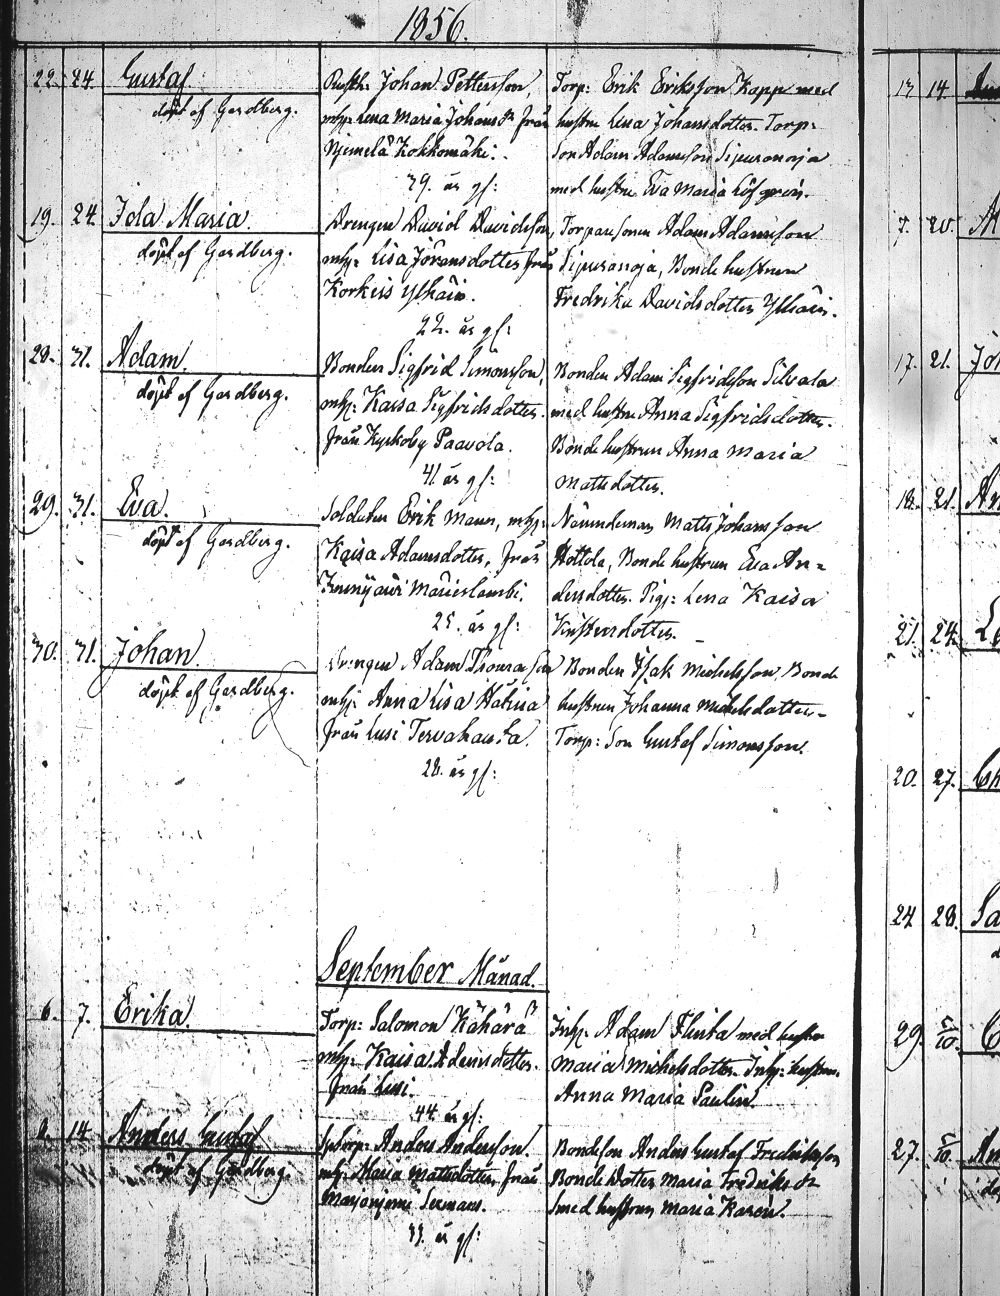 1856.
22. 24. Gustaf
döpt af Gardberg.
Rusth: Johan Pettersson,
mh: Lena Maria Johans Dr från
Njimelä Kokkomäki.
39. år gl:
Torp: Erik Eriksson Kapp med
hustru Lena Johansdotter. Torp:
Son Adam Adamsson Sipuranoja
med hustru Eva Maria Löfgren.
19. 24. Ida Maria.
döpt af Gardberg.
Drengen David Davidsson,
mh: Lisa Jöransdotter från
Korkeis Ylhäis.
22. år gl:
Torparsonen Adam Adamsson
Sipuranoja, Bondehustrun
Fredrika Davidsdotter Ylhäis.
28. 31. Adam.
döpt af Gardberg.
Bonden Sigfrid Simonsson,
mh: Kaisa Sigfridsdotter.
från Kyrkoby Paavola.
41 år gl:
Bonden Adam Sigfridsson Silvala
med hustru Anna Sigfridsdotter.
Bondehustrun Anna Maria
Mattsdotter.
29. 31. Eva.
döpt af Gardberg.
Soldaten Erik Manner, mh:
Kaisa Adamsdotter, från
25. år gl:
Nämndeman Matts Johansson
Hottola, Bondehustrun Eva An=
dersdotter. Pig: Lena Kaisa
Kristersdotter.
30. 31. Johan.
döpt af Gardberg.
Drengen Adam Thomasson
mh: Anna Lisa Hakina
från Lusi Tervahauta.
28. år gl:
Bonden Isak Michelsson, Bonde
hustrun Johanna Michelsdotter.
Torp: Son Gustaf Simonsson.
September Månad.
6. 7. Erika.
Torp: Salomon Kähärä
mh: Kaisa Adamsdotter.
från Lusi.
44 år gl:
Inh: Adam Flinta med hustru
Maria Michelsdotter. Inh: hustru
Anna Maria Paulin.
14. Anders Gustaf
döpt af Gardberg.
Anders Andersson.
mh: Maria Mattsdotter, från
33. år gl:
Bondeson Anders Gustaf Fredriksson
Bonde Dotter Maria Fredriks Dr
Smedhustrun Maria Karen.
13 14.
7. 20.
17. 21.
18. 21.
21. 24.
20. 27.
24 28.
29. 5/10.
27. 5/10.